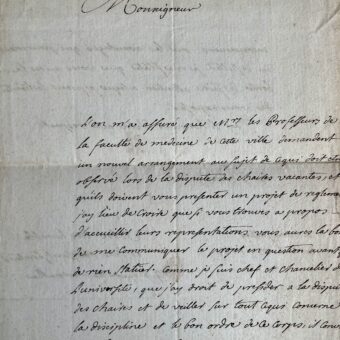 Monseigneur
L'on m'a assuré que Mrs les Professeurs de
la faculté de medecine de cette ville demandent
un nouvel arrangement au sujet de ce qui doit etre
observé lors de la dispute des chaires vacantes, et
quils doivent vous presenter un projet de reglem
j'ay lieu de croire que si vous trouvés a propos
d'accueillir leurs representations vous aurés la bon
de me communiquer le projet en question avant
de rien statuer. comme je suis chef et Chancelier de
L'université, que j'ay droit de presider a la dispu
des chaires et de veiller sur tout ce qui concerne
la discipline et le bon ordre de ce corps, il conv